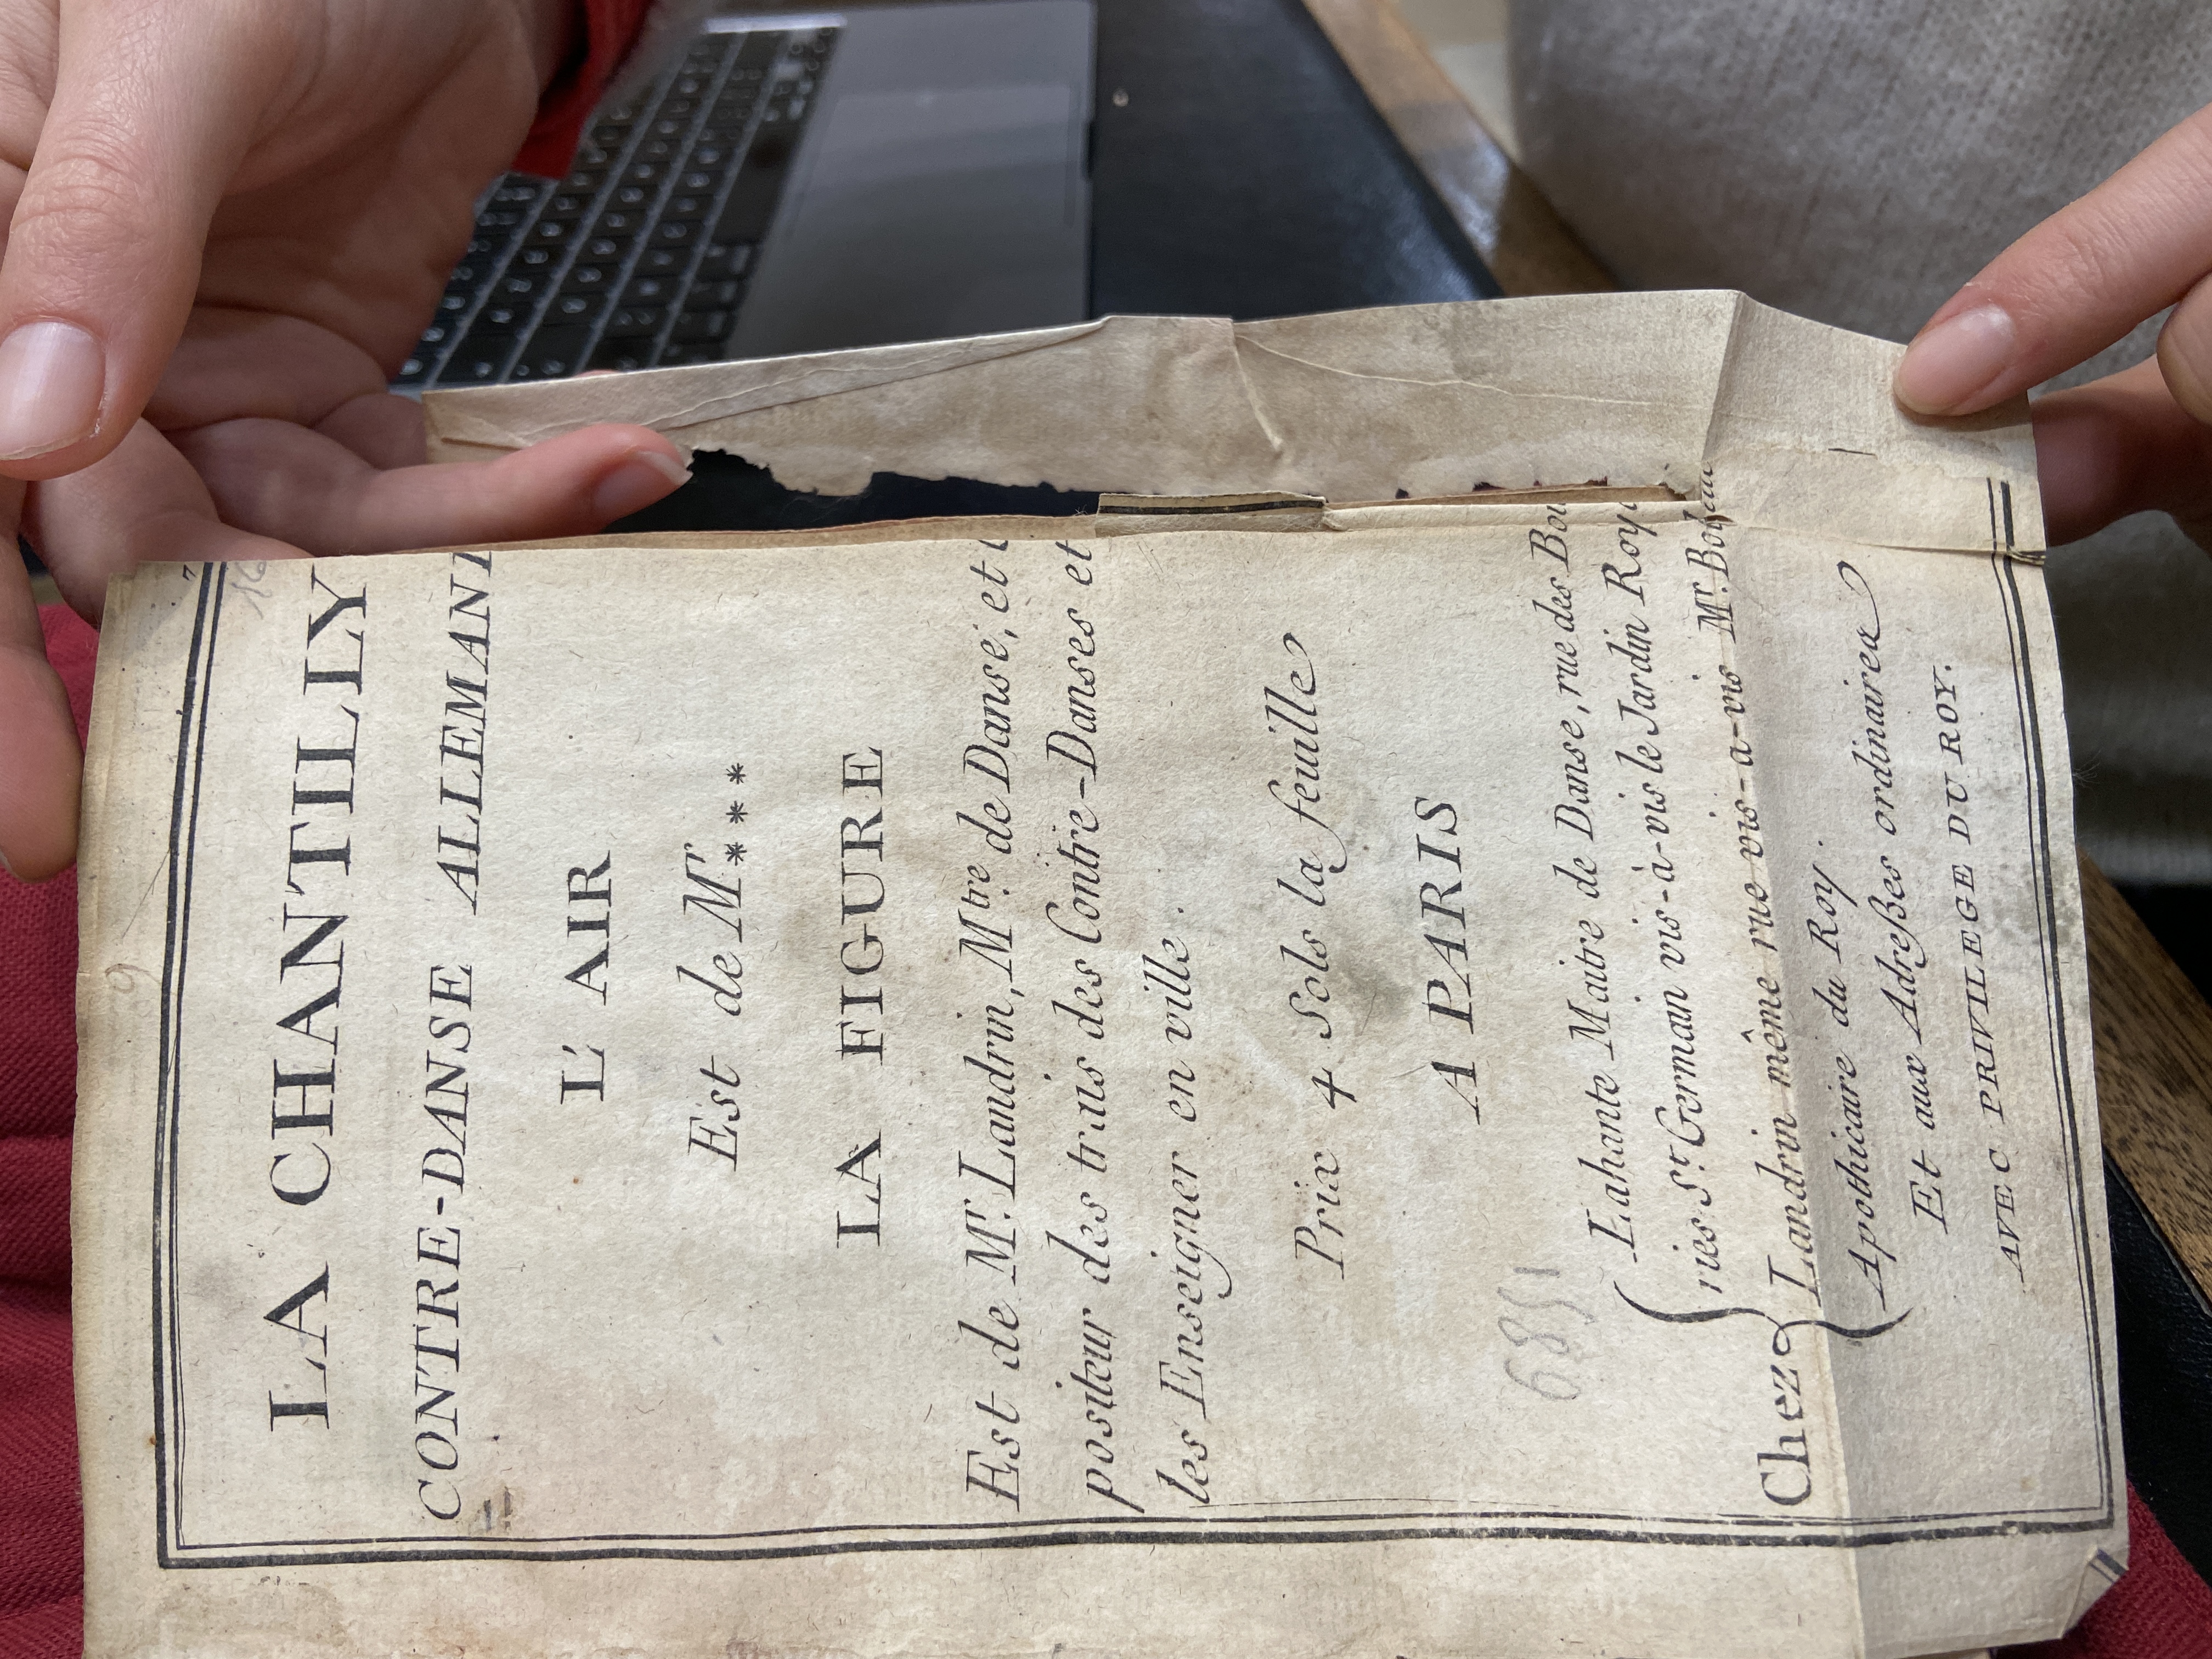 LA CHANTILLY
CONTRE-DANSE ALLEMAN
L'AIR
Est de Mr. ***
LA FIGURE
Est de Mr. Landrin, Mtre de Danse, et
positeur des traits des Contre-Danses et
les Enseigner en ville.
Prix 4 Sols la feuille
A PARIS
1589
Chez
Lahante Maitre de Danse, rue des
ries St Germain vis-à-vis le Jardin Roy
Landrin même rue vis-a-vis Mr.
Apothicaire du Roy.
Et aux Adreßes ordinaires
AVEC PRIVILEGE DU ROY.